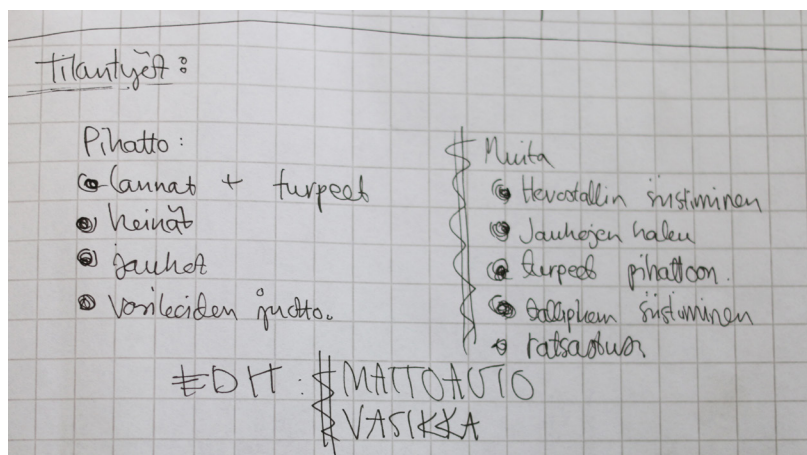 Tilantyöt:
Pihatto:
lannat + turpeet
heinät
jauhot
vasikoiden juotto.
Muita
Hevostallin siistiminen
Jauhojen haku
turpeet pihattoon.
tallipihan siistiminen
ratsastus
EDIT: MATTOAUTO
VASIKKA